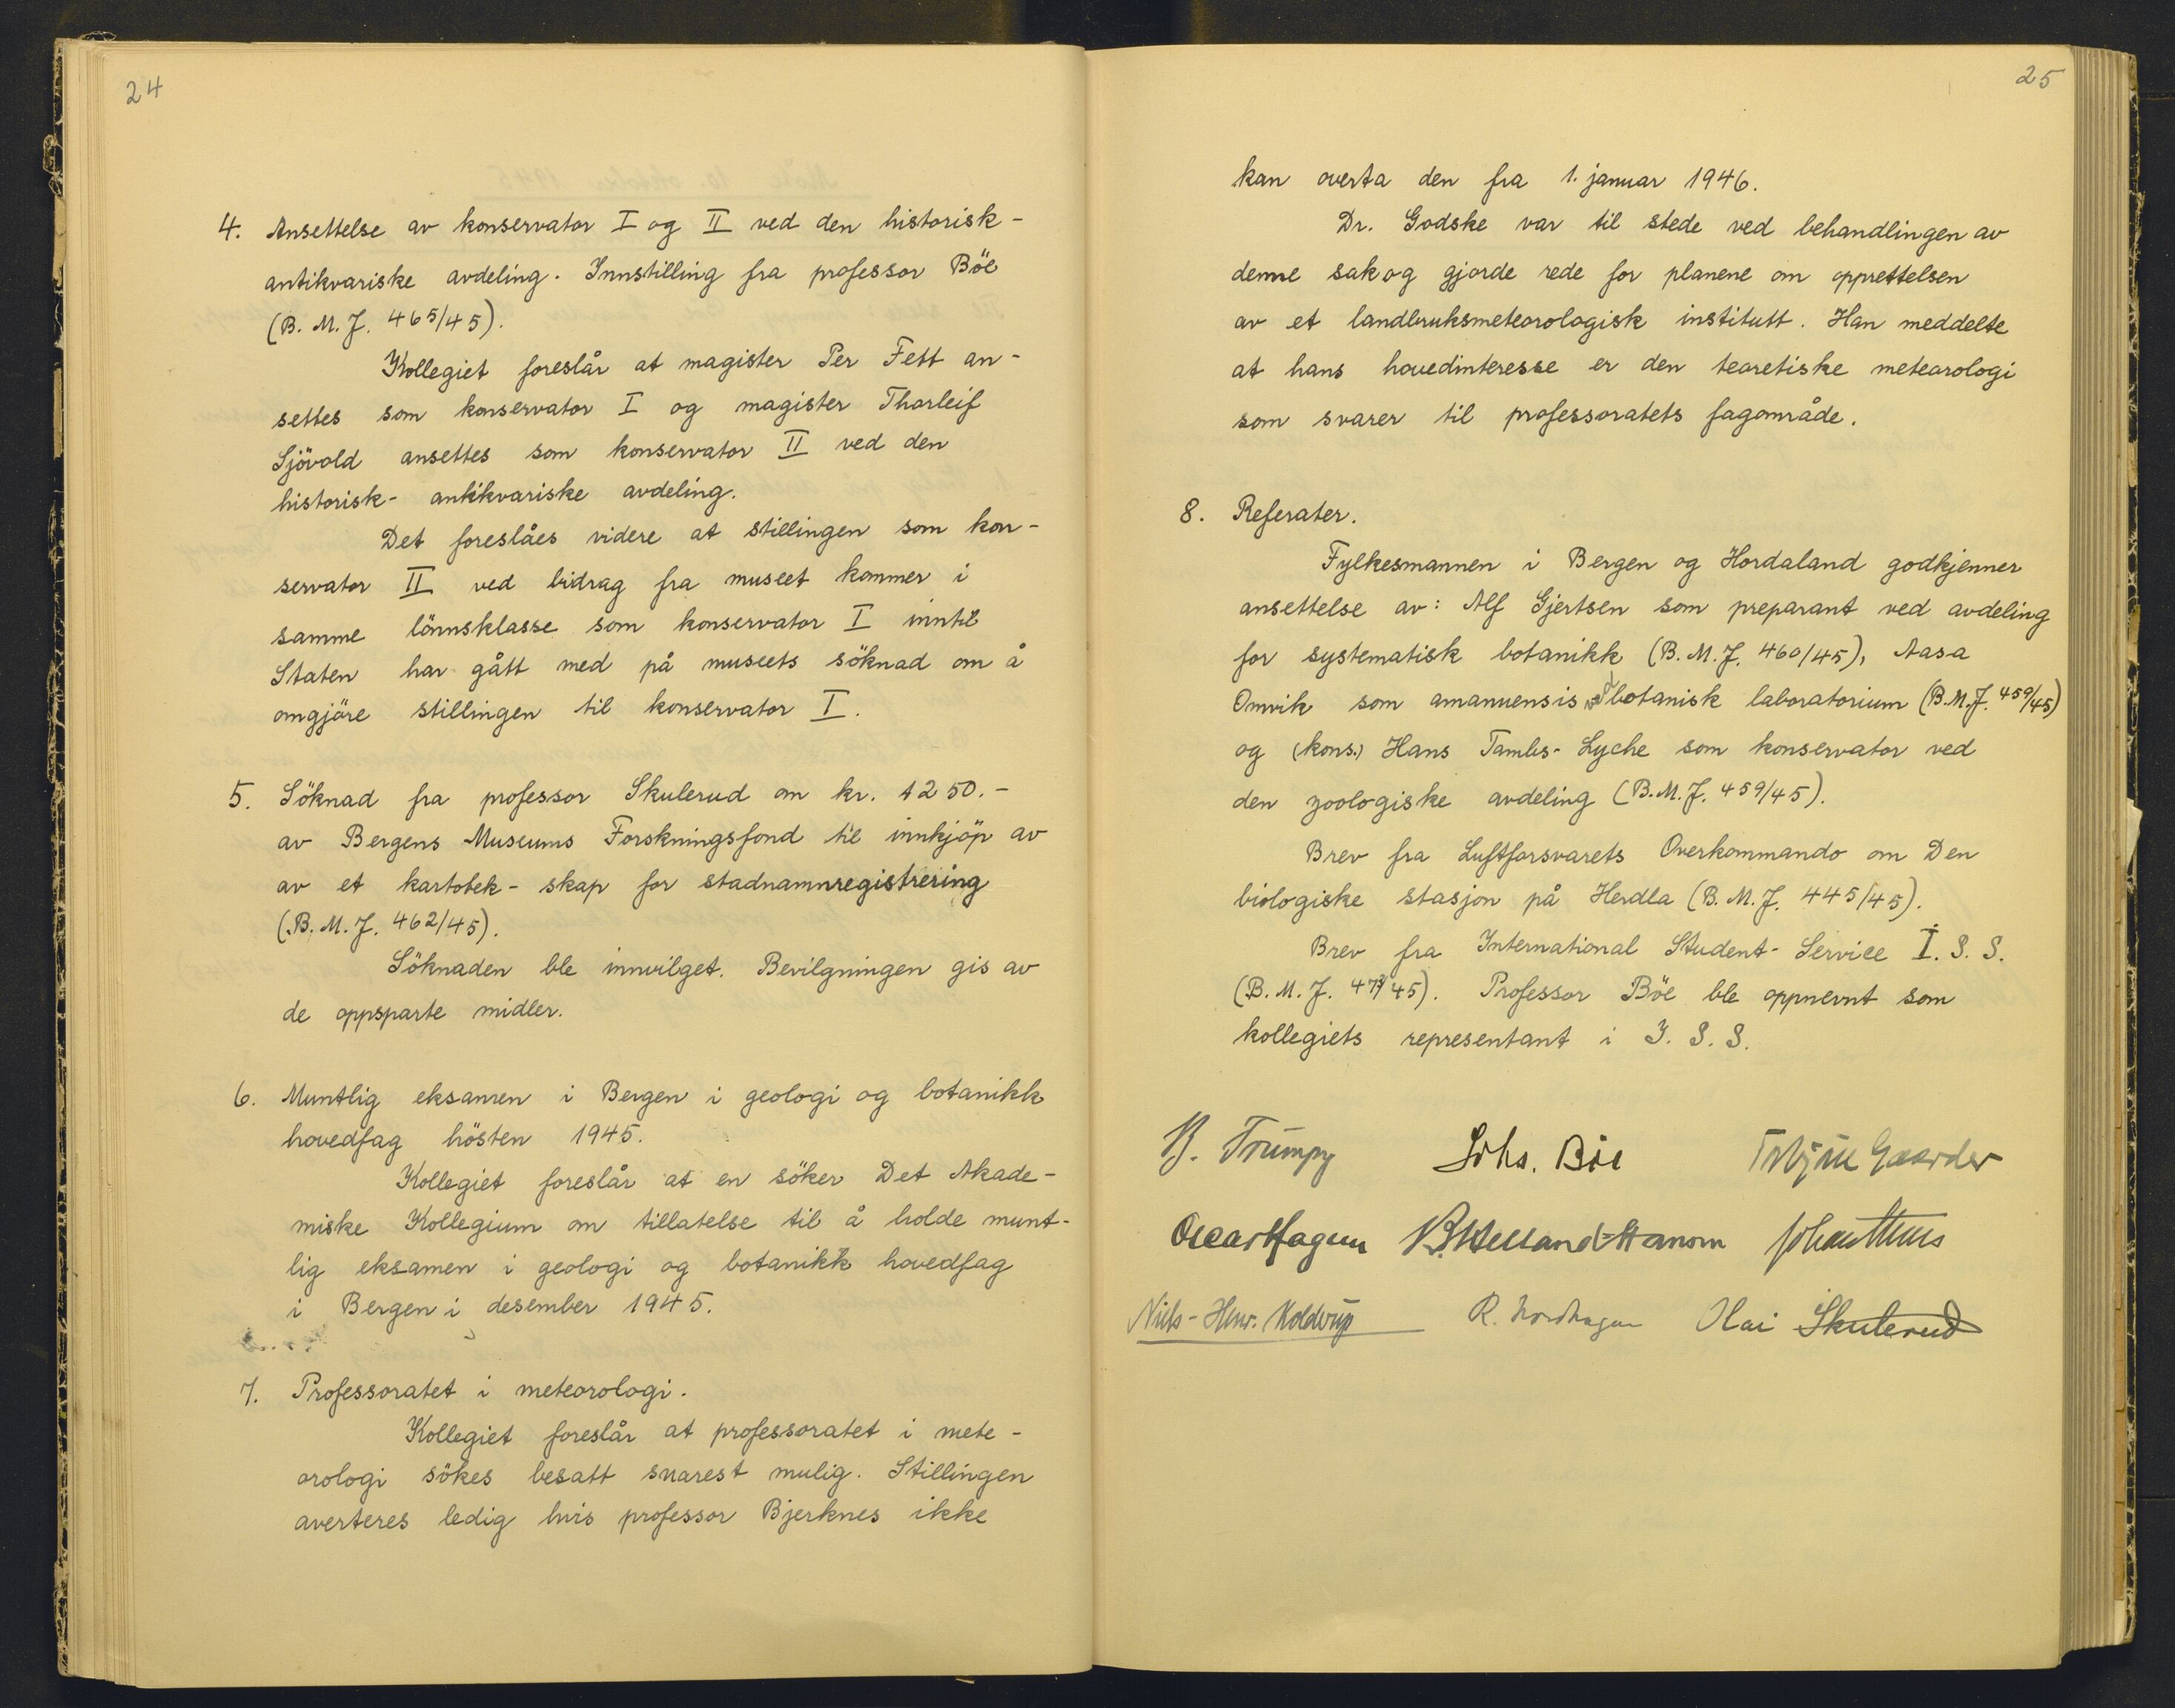 24
4. Ansettelse av konservator I og II ved den historisk-
antikvariske avdeling. Innstilling fra professor Böe
(B. M. J. 465/45).
Kollegiet foreslår at magister Per Fett an-
settes som konservator I og magister Thorleif
Sjövold ansettes som konservator II ved den
historisk- antikvariske avdeling.
Det foreslåes videre at stillingen som kon-
servator II ved bidrag fra museet kommer i
samme lönnsklasse som konservator I inntil
Staten har gått med på museets söknad om å
omgjöre stillingen til konservator I.
5. Söknad fra professor Skulerud om kr. 1250.-
av Bergens Museums Forskningsfond til innkjöp av
av et kartotek- skap for stadnamnregistrering
(B. M. J. 462/45).
Söknaden ble innvilget. Bevilgningen gis av
de oppsparte midler.
6. Muntlig eksamen i Bergen i geologi og botanikk
hovedfag hösten 1945.
Kollegiet foreslår at en söker Det Akade-
miske Kollegium om tillatelse til å holde munt-
lig eksamen i geologi og botanikk hovedfag
i Bergen i desember 1945.
7. Professoratet i meteorologi.
Kollegiet foreslår at professoratet i mete-
orologi sökes besatt snarest mulig. Stillingen
averteres ledig hvis professor Bjerknes ikke
25
kan overta den fra 1. januar 1946.
Dr. Godske var til stede ved behandlingen av
denne sak og gjorde rede for planene om opprettelsen
av et landbruksmeteorologisk institutt. Han meddelte
at hans hovedinteresse er den teoretiske meteorologi
som svarer til professoratets fagområde.
8. Referater.
Fylkesmannen i Bergen og Hordaland godkjenner
ansettelse av: Alf Gjertsen som preparant ved avdeling
for systematisk botanikk (B. M. J. 460/45), Aasa
Omvik som amanuensis botanisk laboratorium (B. M. J. 459/45)
og (kons.) Hans Tambs-Lyche som konservator ved
den zoologiske avdeling (B. M. J. 459/45).
Brev fra Luftforsvarets Overkommando om Den
biologiske stasjon på Herdla (B. M. J. 445/45).
Brev fra International Student-Service I. S. S.
(B. M. J. 473/45). Professor Böe ble oppnevnt som
kollegiets representant i I. S. S.
B. Trumpy Johs. Böe Torbjörn Gaarder
Oscar Hagem B. Helland-Hansen
Niels-Henr. Kolderup R. Nordhagen Olai Skulerud